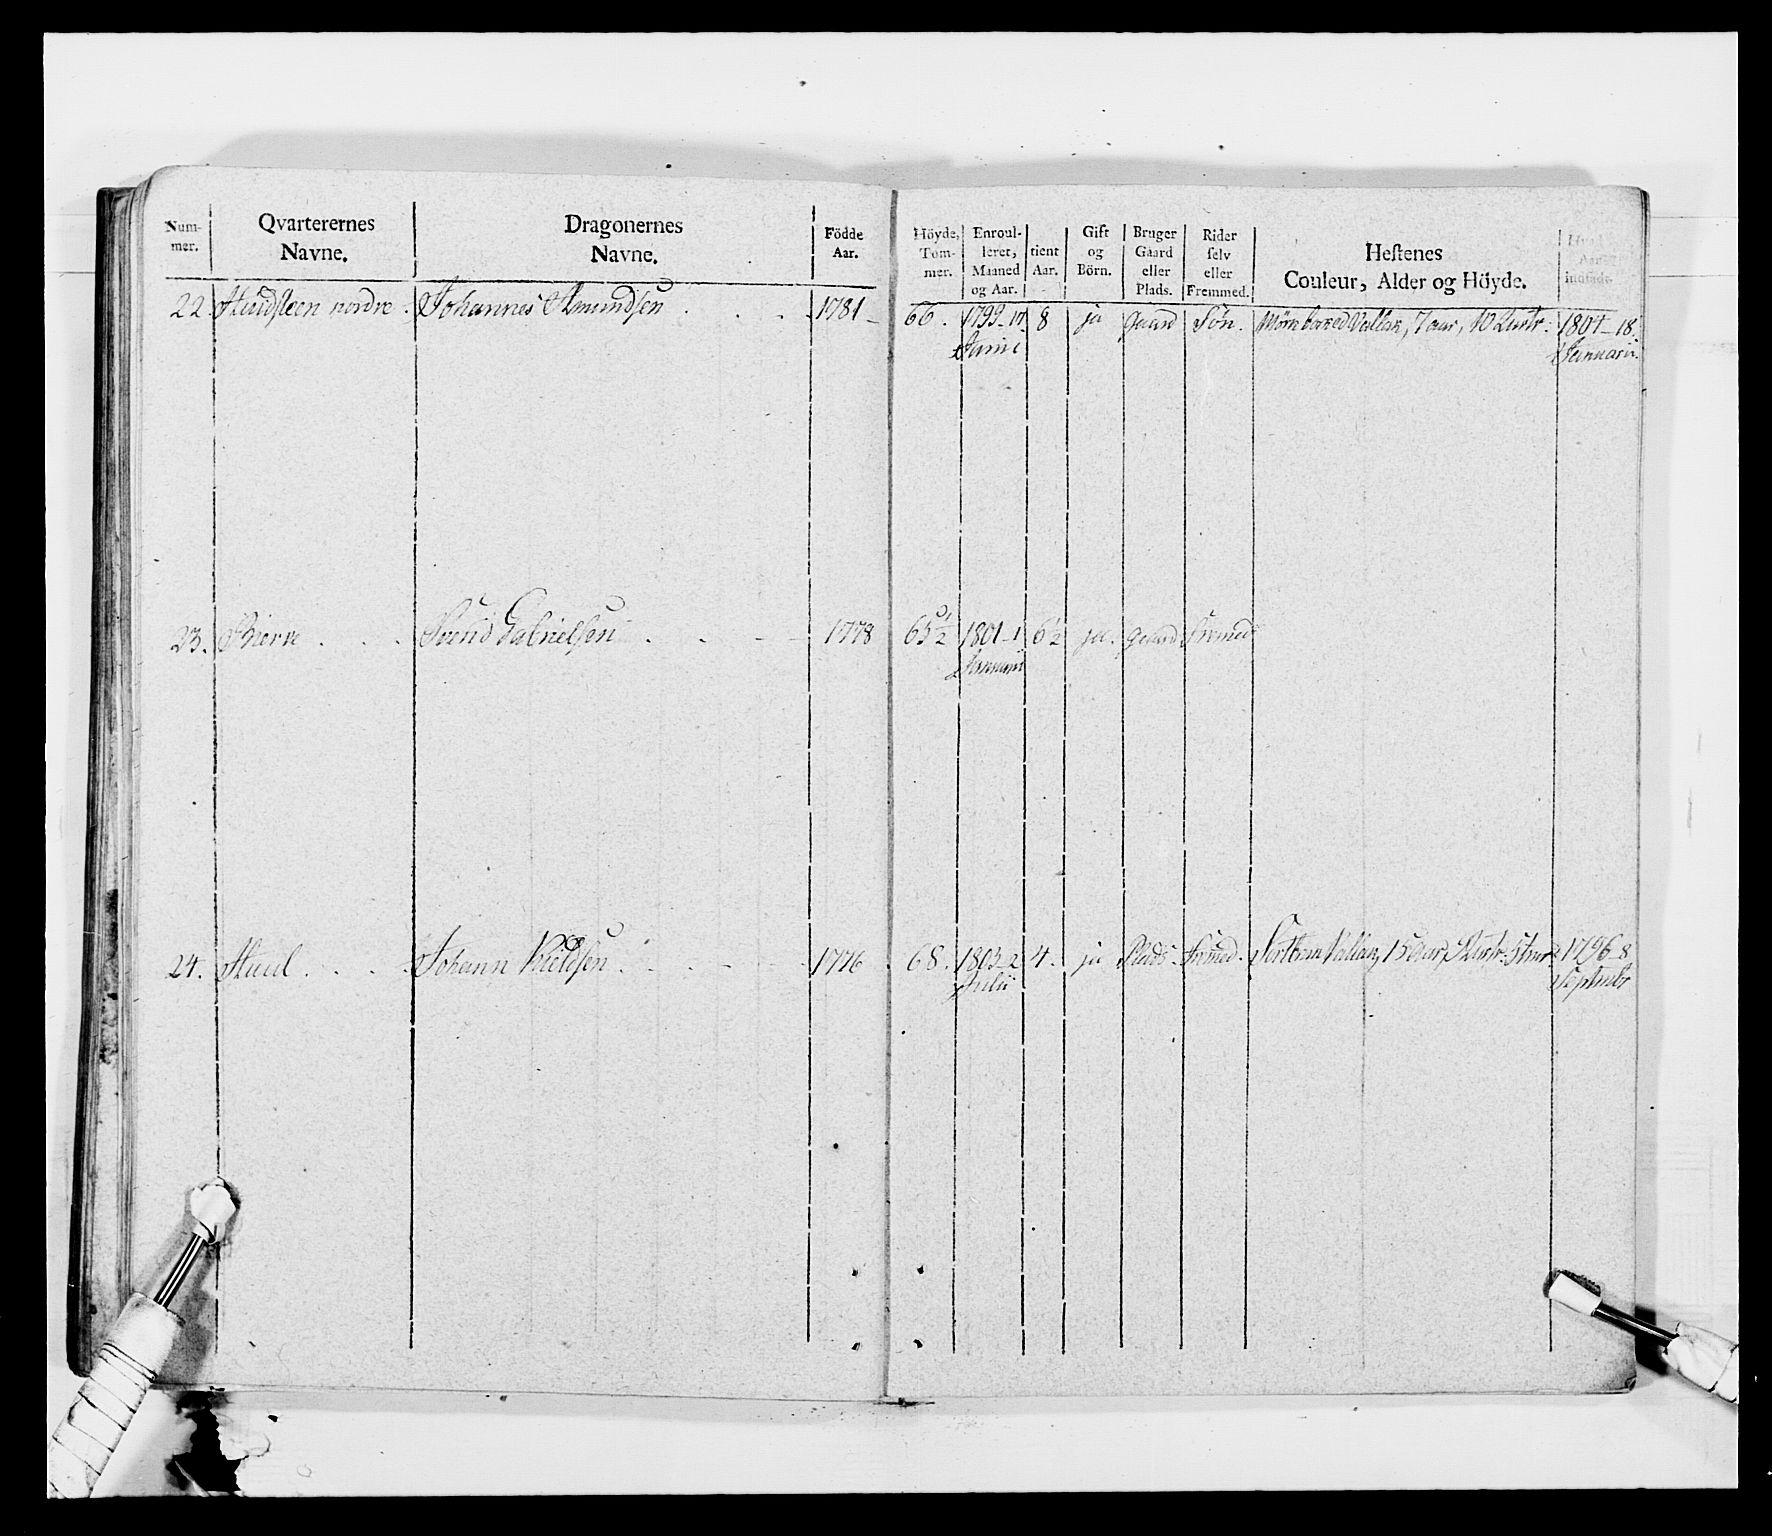 Num-
mer.
Qvarterernes
Navne.
Dragonernes
Navne.
Födde
Aar.
Höyde,
Tom-
mer.
Enroul-
leret,
Maaned
og Aar.
tient
Aar.
Gift
og
Börn.
Bruger
Gaard
eller
Plads.
Rider
selv
eller
Fremmed.
Hestenes
Couleur, Alder og Höyde.
Aar
indsadt.
22. nordre. Johannes Amundsen 1781 66. 1799_17 8 ja gaard Søn. Mörkbored Vallak, 7 aar, 10 Qurtr. 1804_18.
Junii Januarii.
23. Bierve Svend Gabrielsen 1778 65 1/2 1801_1 6 1/2 ja. gaard Frmed
Januari
24. Skuul Johann Kieldsen 1776 68. 1803_2 4. ja Plads. Frmed. Sortbrun Vallak, 15 aar, 1796_8
Julii Septembr